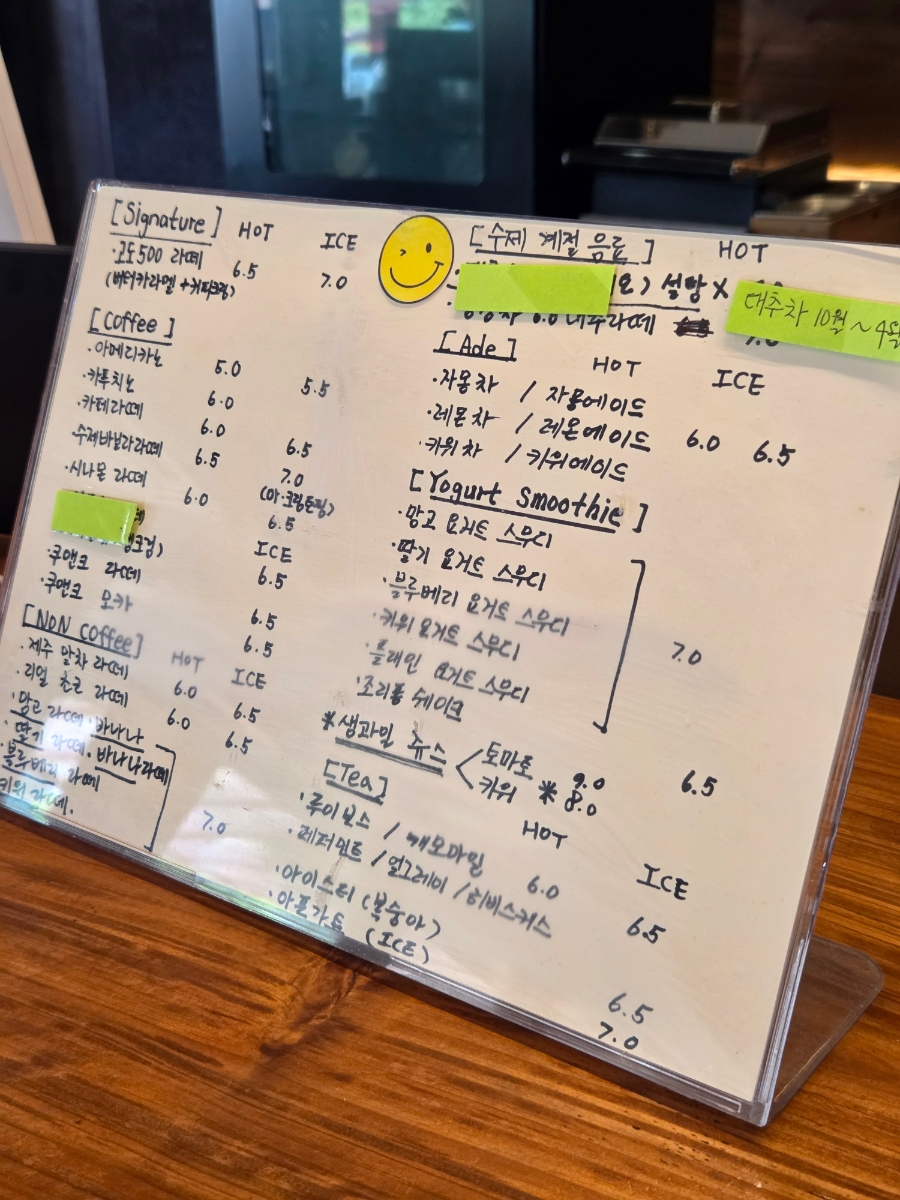 [Signature] HOT ICE
·고도500 라떼 6.5 7.0
(버터카라멜+커피크림)
[Coffee]
·아메리카노 5.0 5.5
·카푸치노 6.0
·카페라떼 6.0 6.5
·수제바닐라라떼 6.5 7.0
(아·크림토핑)
·시나몬 라떼 6.0 6.5
ICE
6.5
·쿠앤크 라떼 6.5
·쿠앤크 모카 6.5
[NON Coffee] HOT ICE
·제주 말차 라떼 6.0 6.5
·리얼 초코 라떼 6.0 6.5
·망고 라떼·바나나
·딸기 라떼·바나나라떼
·블루베리 라떼
키위 라떼.
7.0
[수제 계절 음료] HOT
요) 설탕 X
대추차 10월~4월
6.0 대추라떼 7.0
[Ade] HOT ICE
·자몽차 / 자몽에이드
·레몬차 / 레몬에이드 6.0 6.5
·키위차 / 키위에이드
[Yogurt Smoothie]
·망고 요거트 스무디
·딸기 요거트 스무디
·블루베리 요거트 스무디
·키위 요거트 스무디 7.0
·플레인 요거트 스무디
·조리퐁 쉐이크 6.5
*생과일 쥬스 < 토마토 9.0
키위 * 8.0
[Tea] HOT ICE
·루이보스 / 캐모마일
·페퍼민트 / 얼그레이 / 히비스커스 6.0 6.5
·아이스티 (복숭아) 6.5
·아포가토 (ICE) 7.0